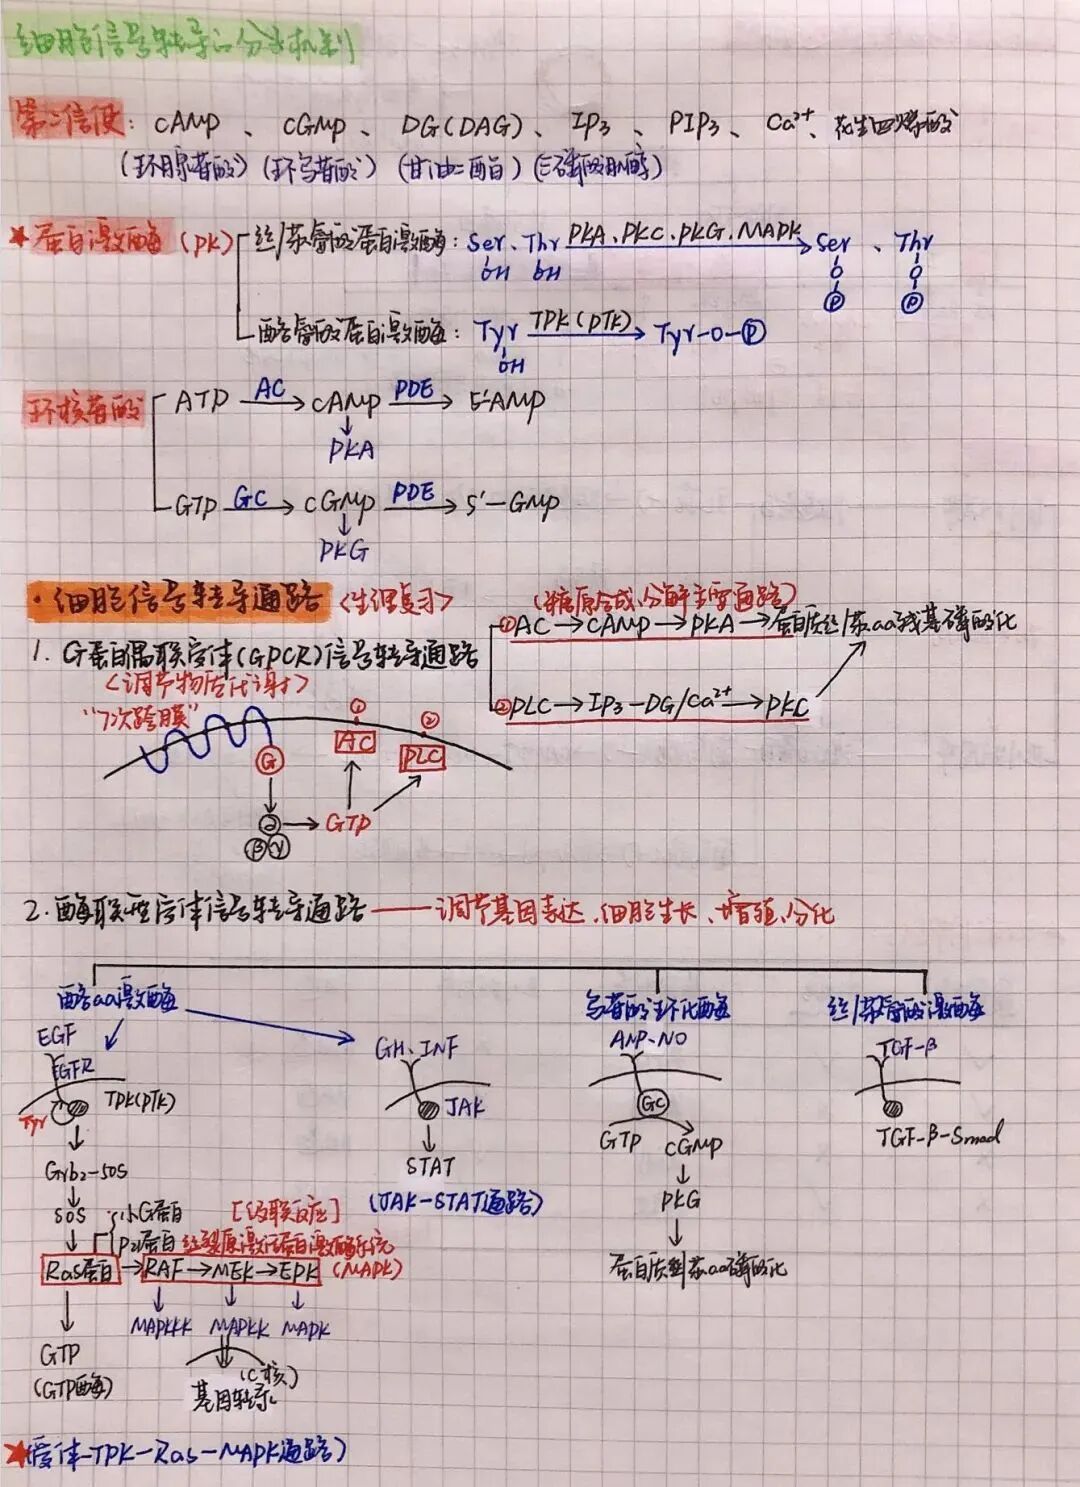 细胞信号转导的分子机制
第二信使：cAMP、cGMP、DG(DAG)、IP3、PIP3、Ca2+、花生四烯酸
(环腺苷酸)(环鸟苷酸)(甘油二酯)(三磷酸肌醇)
★蛋白激酶(PK)
丝/苏氨酸蛋白激酶：Ser、Thr PKA、PKC、PKG、MAPK → Ser、Thr
OH OH O O
P P
酪氨酸蛋白激酶：Tyr TPK(PTK) → Tyr-O-P
OH
环核苷酸
ATP AC → cAMP PDE → 5'AMP
↓
PKA
GTP GC → cGMP PDE → 5'-GMP
↓
PKG
·细胞信号转导通路 <生理复习>
(糖原合成、分解主要通路)
①AC→cAMP→PKA→蛋白质丝/苏aa残基磷酸化
1. G蛋白偶联受体(GPCR)信号转导通路
<调节物质代谢>
②PLC→IP3-DG/Ca2+→PKC
"7次跨膜"
① ②
G AC PLC
α → GTP
β γ
2. 酶联型受体信号转导通路——调节基因表达、细胞生长、增殖、分化
酪aa激酶 鸟苷酸环化酶 丝/苏氨酸激酶
EGF GH、INF ANP、NO TGF-β
EGFR
Tyr TPK(PTK) JAK GC
GTP cGMP TGF-β-Smad
Grb2-SOS STAT
(JAK-STAT通路) PKG
SOS 小G蛋白 [级联反应]
P21蛋白 丝裂原激活蛋白激酶系统
Ras蛋白→RAF→MEK→EPK (MAPK) 蛋白质丝苏aa磷酸化
MAPKKK MAPKK MAPK
GTP
(GTP酶) (C核)
基因转录
★(受体-TPK-Ras-MAPK通路)